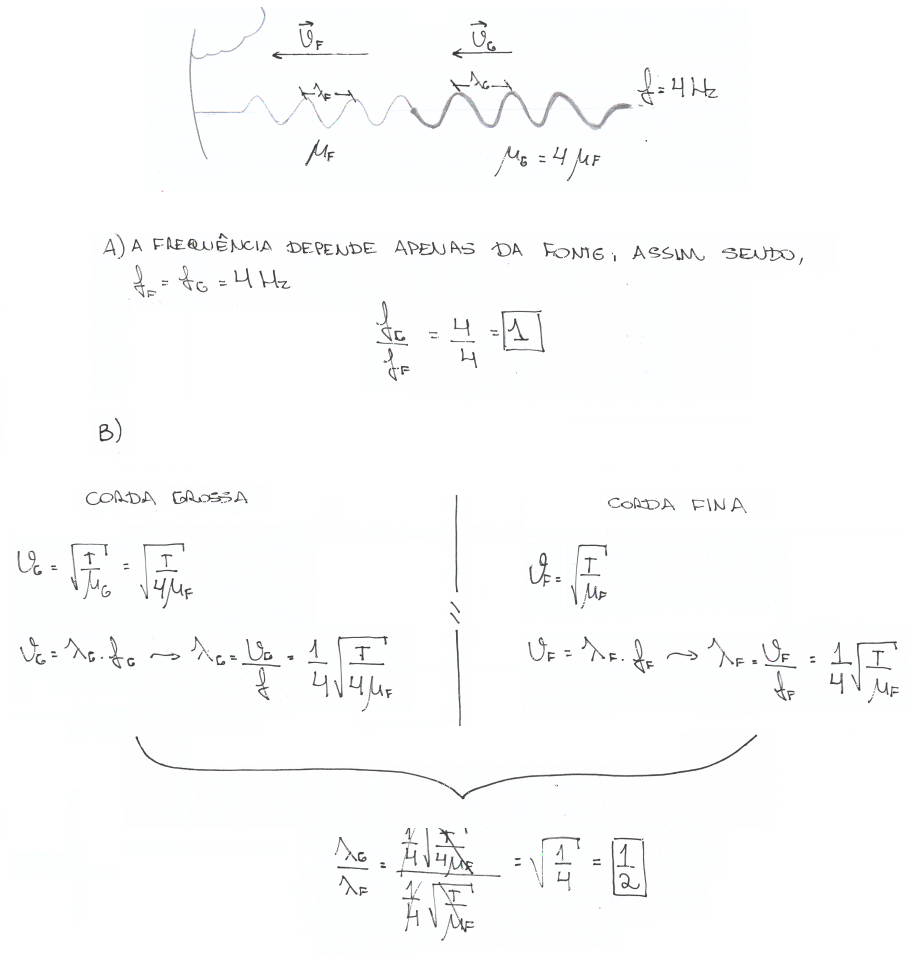 v⃗_F v⃗_G
λ_F λ_G f = 4 Hz
μ_F μ_G = 4 μ_F
A) A FREQUÊNCIA DEPENDE APENAS DA FONTE; ASSIM SENDO,
f_F = f_G = 4 Hz
f_G/f_F = 4/4 = 1
B)
CORDA GROSSA
v_G = √(T/μ_G) = √(T/4μ_F)
v_G = λ_G . f_G → λ_G = v_G/f = 1/4 √(T/4μ_F)
CORDA FINA
v_F = √(T/μ_F)
v_F = λ_F . f_F → λ_F = v_F/f_F = 1/4 √(T/μ_F)
λ_G/λ_F = (1/4 √(T/4μ_F))/(1/4 √(T/μ_F)) = √(1/4) = 1/2